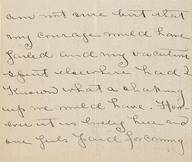 am not sure but what
my courage would have
failed and my vacation
spent elsewhere had I
known what a shaking
up we would have. How
ever it is lovely here and
one feels paid for coming